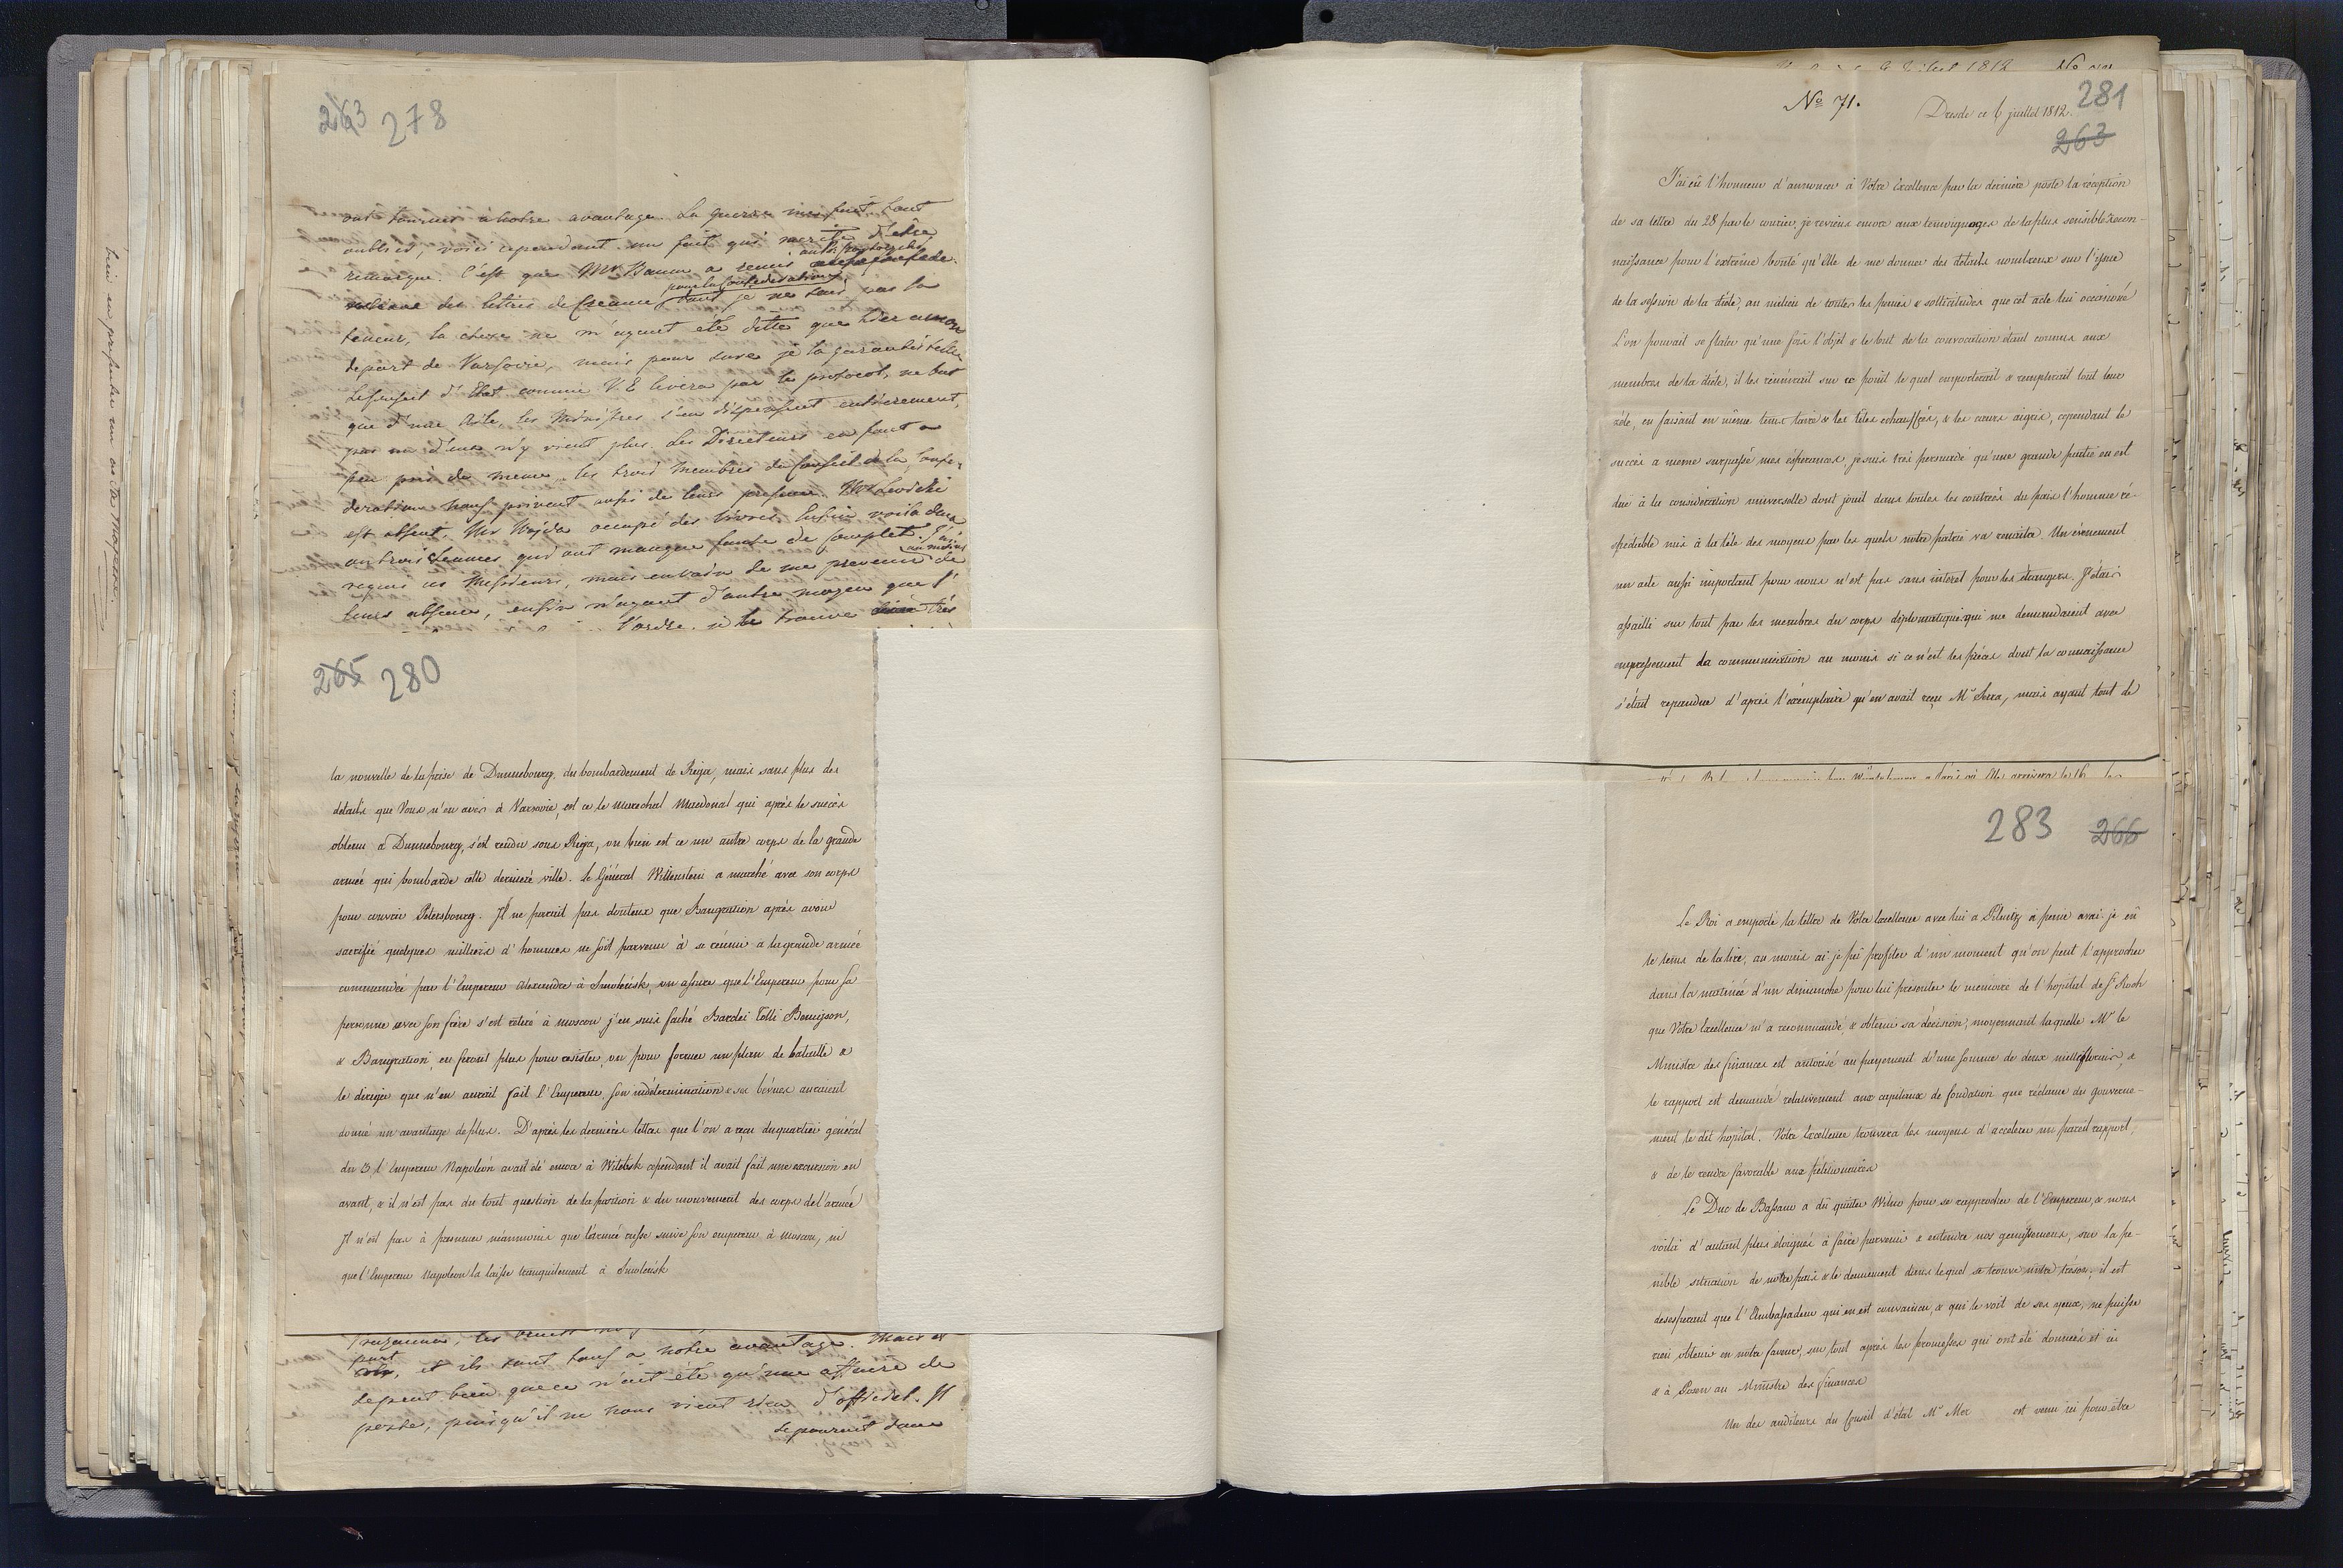 263 278
ont tourné a notre avantage. La guerre nous fait tout
oublier, voici cependant un fait qui merite d'etre
remarqué. C'est que Mr Baum a remis
des lettres de Creance pour la Confederation dont je ne sais pas la
teneur, la chose ne m'ayant été ditte que hier a mon
depart de Varsovie, mais pour sure je la garantis telle
Le Conseil d'Etat comme V. E. le verra par le protocol, ne bat
que d'une aile, les Ministres s'en dispensent entierement,
pas un d'eux n'y vient plus. Les Directeurs en font a
peu près de meme, les trois membres du Conseil de la Confe-
deration nous privent aussi de leurs presence. Mr Linowski
est absent. Mr Wojda occupé des vivres. Enfin voila deux
ou trois Seances qui ont manqué faute de Complet. J'ai
requis ces Messieurs, mais en vain de me prevenir au moins de
leurs absence, enfin n'ayant d'autre moyen que l'
l'ordre. si te trouve très
265 280
la nouvelle de la prise de Dunnebourg, du bombardement de Riga, mais sans plus des
détails que Vous n'en avés à Varsovie, est ce le marechal Macdonal qui après le succès
obtenu à Dunnebourg, s'est rendu sous Riga, ou bien est ce un autre corps de la grande
armée qui bombarde cette dernière ville. Le Général Wittenstein a marché avec son corps
pour couvrir Petersbourg. Il ne parait pas douteux que Bangration après avoir
sacrifié quelques milliers d'hommes ne soit parvenu à se réunir à la grande armée
commandée par l'Empereur Alexandre à Smolensk, on assure que l'Empereur pour sa
personne avec son frère s'est retiré à Moscou j'en suis faché Barclei Tolli Benigson,
& Bangration, en feront plus pour resister, ou pour former un plan de bataille &
le diriger que n'en aurait fait l'Empereur, son indétermination & ses bévues auraient
donné un avantage de plus. D'après les dernières lettres que l'on a reçu du quartier général
du 3 l'Empereur Napoléon avait été encore à Witebsk cependant il avait fait une excursion en
avant, & il n'est pas du tout question de la position & du mouvement des corps de l'armée
Il n'est pas à présumer néanmoins que l'armée russe suive son empereur à Moscou, ni
que l'Empereur Napoleon la laisse tranquilement à Smolensk
part, et ils sont tous a notre avantage. Mais il
se peut bien que ce n'ait été qu'une affaire de
poste, puisqu'il ne nous vient rien d'officiel. Il
se pourrait donc
No 71. Dresde ce 6 juillet 1812. 281
263
J'ai eû l'honneur d'annoncer à Votre Excellence par la dernière poste la réception
de sa lettre du 28 par le courier, je reviens encore aux temoignages de la plus sensible recon-
naissance pour l'extrême bonté qu'Elle de me donner des détails nombreux sur l'issue
de la session de la diète, au milieu de toutes les peines & sollicitudes que cet acte lui occasionné
L'on pouvait se flater qu'une fois l'objet & le but de la convocation étant connus aux
membres de la diète, il les réunirait sur ce point le quel emporterait & remplirait tout leur
zéle, en faisant en même tems taire & les têtes echauffées, & les cœurs aigris, cependant le
succès a meme surpassé mes éspérances, je suis très persuadé qu'une grande partie en est
due à la considération universelle dont jouit dans toutes les contrées du païs l'homme ré-
spéctable mis à la tête des moyens par les quels notre patrie va renaitre. Un évenement
un acte aussi important pour nous n'est pas sans interet pour les étrangers. J'étais
assailli sur tout par les membres du corps diplomatique qui me demandaient avec
empressement la communication au moins si ce n'est les pièces dont la connaissance
s'étant repandue d'après l'exémplaire qu'en avait reçu Mr Serra, mais ayant tout de
283 266
Le Roi a emporté la lettre de Votre Excellence avec lui a Pilnitz à peine avai je eû
le tems de la lire, au moins ai je pû profiter d'un moment qu'on peut l'approcher
dans la matinée d'un dimanche pour lui présenter le memoire de l'hopital de St Roch
que Votre Excellence m'a recommandé, & obtenir sa décision, moyennant laquelle Mr le
Ministre des finances est autorisé au payement d'une somme de deux mille florins, &
le rapport est demandé relativement aux capitaux de fondation que réclame du gouverne-
ment le dit hopital. Votre Excellence trouvera les moyens d'accelerer un pareil rapport,
& de le rendre favorable aux petitionnaires
Le Duc de Bassano a dû quitter Wilno pour se rapprocher de l'Empereur, & nous
voilà d'autant plus éloignés à faire parvenir & entendre nos gemissemens, sur la pe-
nible situation de notre païs & le denuement dans lequel se trouve notre trésor, il est
desesperant que l'Ambassadeur qui en est convaincu, & qui le voit de ses yeux, ne puisse
rien obtenir en notre faveur, sur tout après les promesses qui ont été données et ici
& à Posen au Ministre des finances
Un des auditeurs du Conseil d'état Mr Mer est venu ici pour être